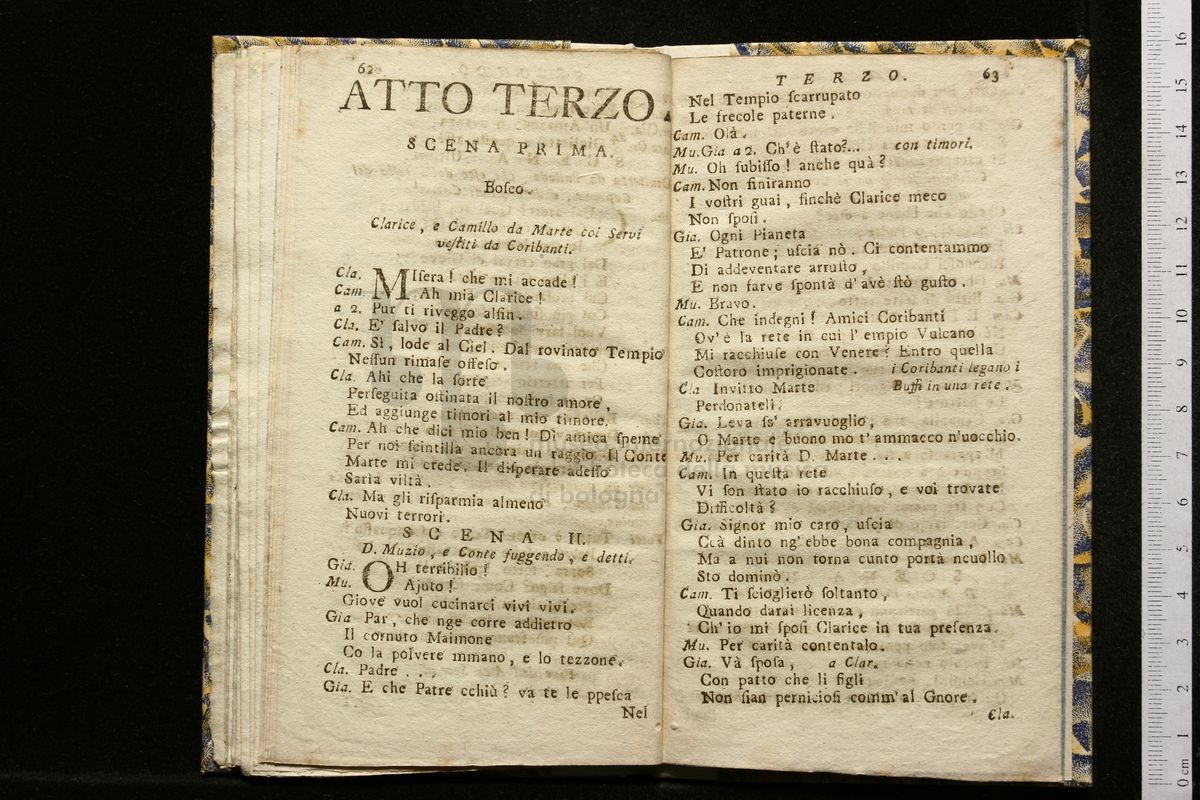 62
ATTO TERZO.
SCENA PRIMA.
Boſco.
Clarice, e Camillo da Marte coi Servi
veſtiti da Coribanti.
Cla. MIſera! che mi accade!
Cam. Ah mia Clarice!
a 2. Pur ti riveggo alfin.
Cla. E' ſalvo il Padre?
Cam. Sì, lode al Ciel. Dal rovinato Tempio
Neſſun rimaſe offeſo.
Cla. Ahi che la ſorte
Perſeguita oſtinata il noſtro amore,
Ed aggiunge timori al mio timore.
Cam. Ah che dici mio ben! Di amica ſpeme
Per noi ſcintilla ancora un raggio. Il Conte
Marte mi crede. Il diſperare adeſſo
Saria viltà.
Cla. Ma gli riſparmia almeno
Nuovi terrori.
SCENA II.
D. Muzio, e Conte fuggendo, e detti.
Gia. OH terribilio!
Mu. Ajuto!
Giove vuol cucinarci vivi vivi.
Gia Par, che nge corre addietro
Il cornuto Maimone
Co la polvere mmano, e lo tezzone.
Cla. Padre...
Gia. E che Patre cchiù? va te le ppeſca
Nel
TERZO. 63
Nel Tempio ſcarrupato
Le frecole paterne.
Cam. Olà.
Mu.Gia a 2. Ch'è ſtato?... con timori.
Mu. Oh ſubiſſo! anche quà?
Cam. Non finiranno
I voſtri guai, finchè Clarice meco
Non ſpoſi.
Gia. Ogni Pianeta
E' Patrone; uſcia nò. Ci contentammo
Di addeventare arruſto,
E non farve ſpontà d'avè ſtò guſto.
Mu. Bravo.
Cam. Che indegni! Amici Coribanti
Ov'è la rete in cui l'empio Vulcano
Mi racchiuſe con Venere? Entro quella
Coſtoro imprigionate. i Coribanti legano i
Cla Invitto Marte Buffi in una rete.
Perdonateli.
Gia. Leva ſs' arravuoglio,
O Marte i buono mo t'ammacco n'uocchio.
Mu. Per carità D. Marte....
Cam. In queſta rete
Vi ſon ſtato io racchiuſo, e voi trovate
Difficoltà?
Gia. Signor mio caro, uſcia
Ccà dinto ng'ebbe bona compagnia,
Ma a nui non torna cunto portà ncuollo
Sto dominò.
Cam. Ti ſcioglierò ſoltanto,
Quando darai licenza,
Ch'io mi ſpoſi Clarice in tua preſenza.
Mu. Per carità contentalo.
Gia. Và ſpoſa, a Clar.
Con patto che li figli
Non ſian pernicioſi comm'al Gnore.
Cla.